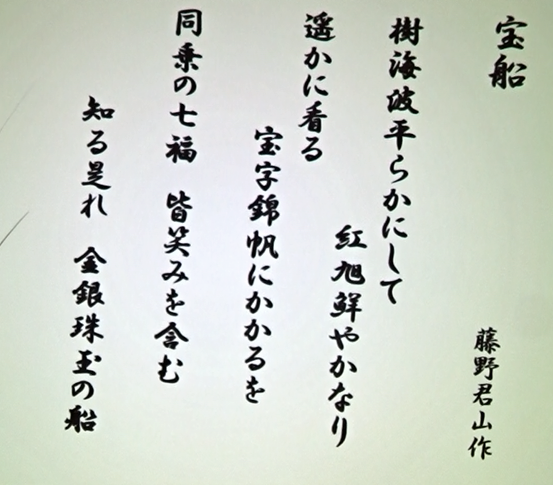 宝船
藤野君山作
樹海波平らかにして
紅旭鮮やかなり
遥かに看る
宝字錦帆にかかるを
同乗の七福 皆笑みを含む
知る是れ 金銀珠玉の船